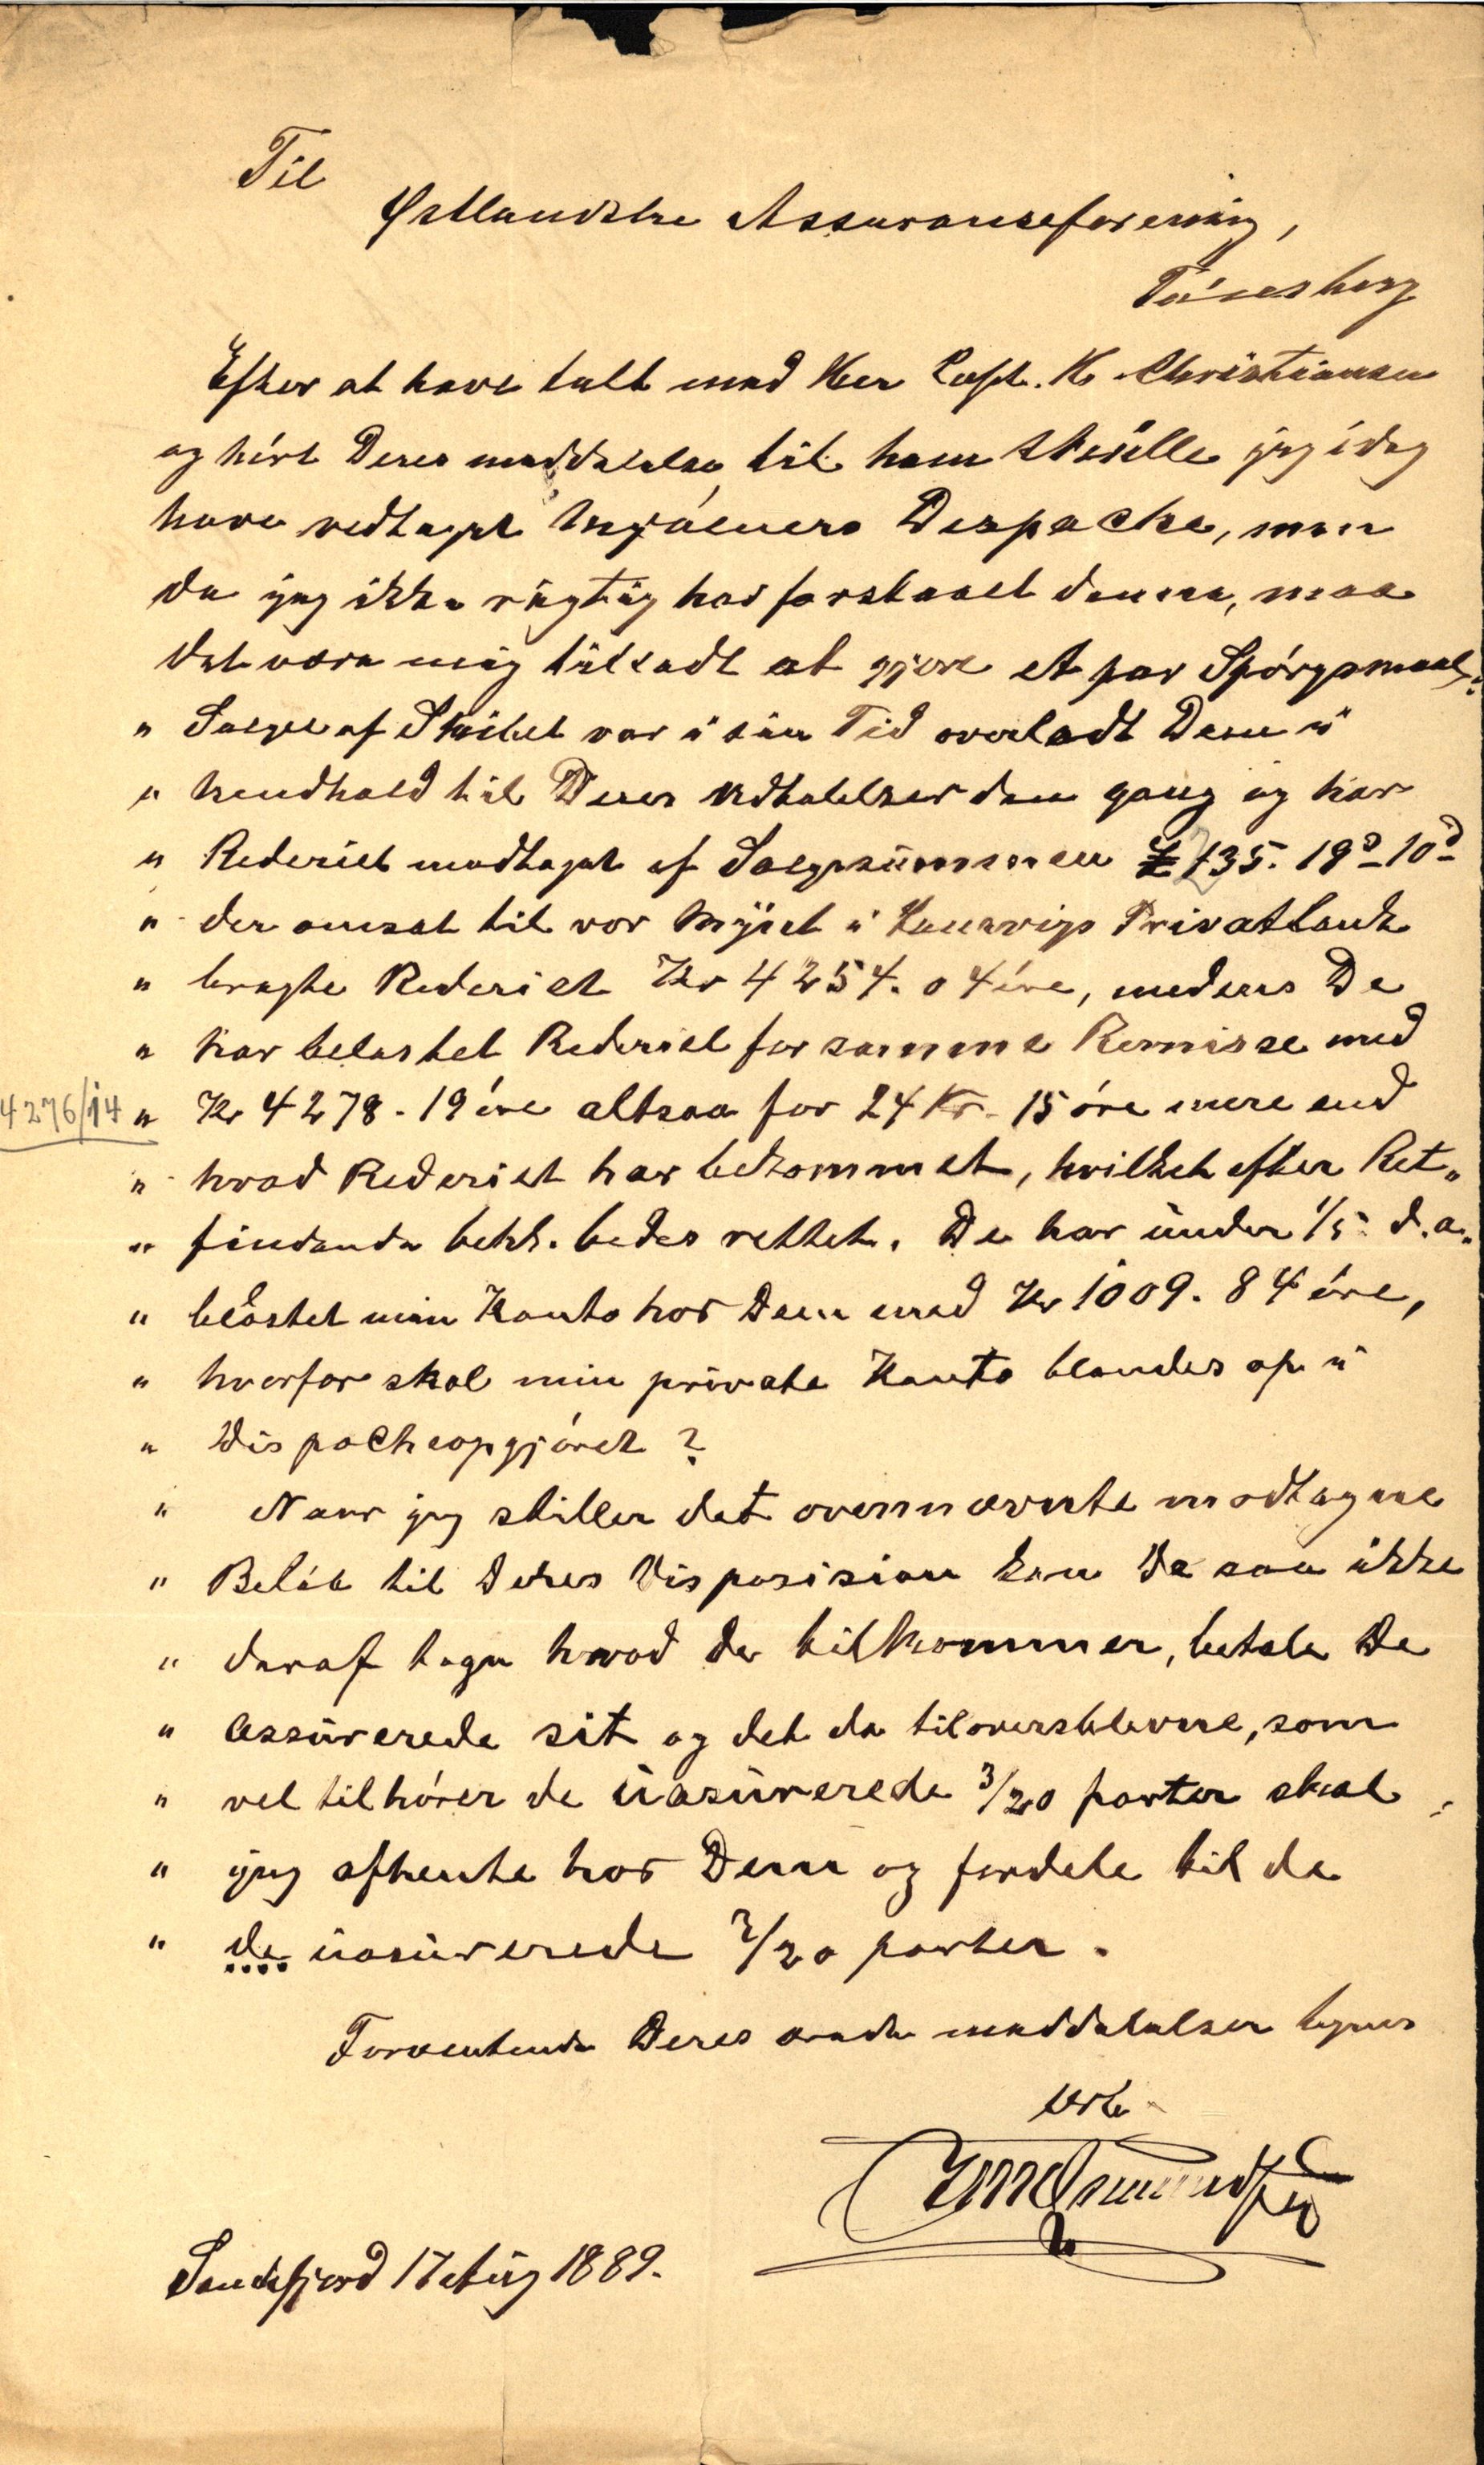 Til
Østlandske Assuranceforening,
Tönsberg
Efter at have talt med Herr Capt. K Christiansen
og hört Deres meddelelse til ham skulde jeg idag
have vedtaget Mjölners Despache, men
da jeg ikke rigtig har forstaaet denne, maa
det være mig tilladt at gjöre et par Spörgsmaal:
" Salget af Skibet var i sin Tid overladt Dem i
" henhold til Deres Udtalelser den gang og har
" Rederiet modtaget af Salgssummen £ 235. 19s 10d
" der omsat til vor Mynt i Laurvigs Privatbank
" bragte Rederiet Kr 4254. 04 öre, medens De
" har belastet Rederiet for samme Remisse med
4276/14 " Kr 4278. 19 öre altsaa for 24 Kr. 15 öre mere end
" hvad Rederiet har bekommet, hvilket efter Ret"
" findende beh. bedes rettet. De har under 1/5 d.a.
" belastet min Konto hos Dem med Kr 1009. 84 öre,
" hvorfor skal min private Konto blandes op i
" Dispacheopgjöret?
" Naar jeg stiller det ovennævnte modtagne
" Belöb til Deres Disposision kan De saa ikke
" deraf tage hvad der tilkommer, betale De
" assurerede sit og det da tiloversblevne, som
" vel tilhörer de uasurerede 3/20 parter skal
" jeg afhente hos Dem og fordele til de
" de uasurerede 3/20 parter.
Forventende Deres ærede meddelelser tegner
erb
Sandefjord 17 Aug 1889.